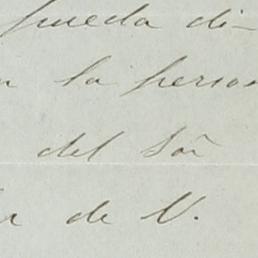 pueda di-
la person
del Sōr
de V.